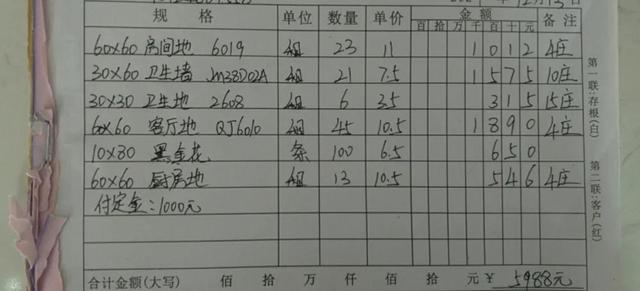 规格 单位 数量 单价 金额 备注
百 拾 万 千 百 十 元
60x60 房间地 6019 组 23 11 1012 4庄
30x60 卫生墙 JM38D02A 组 21 7.5 1575 10庄
30x30 卫生地 2608 组 6 3.5 315 15庄
60x60 客厅地 QJ6010 组 45 10.5 1890 4庄
10x80 黑金花 条 100 6.5 650
60x60 厨房地 组 13 10.5 546 4庄
付定金:1000元
合计金额(大写) 佰 拾 万 仟 佰 拾 元 ¥ 5988元
第一联:存根(白)
第二联:客户(红)